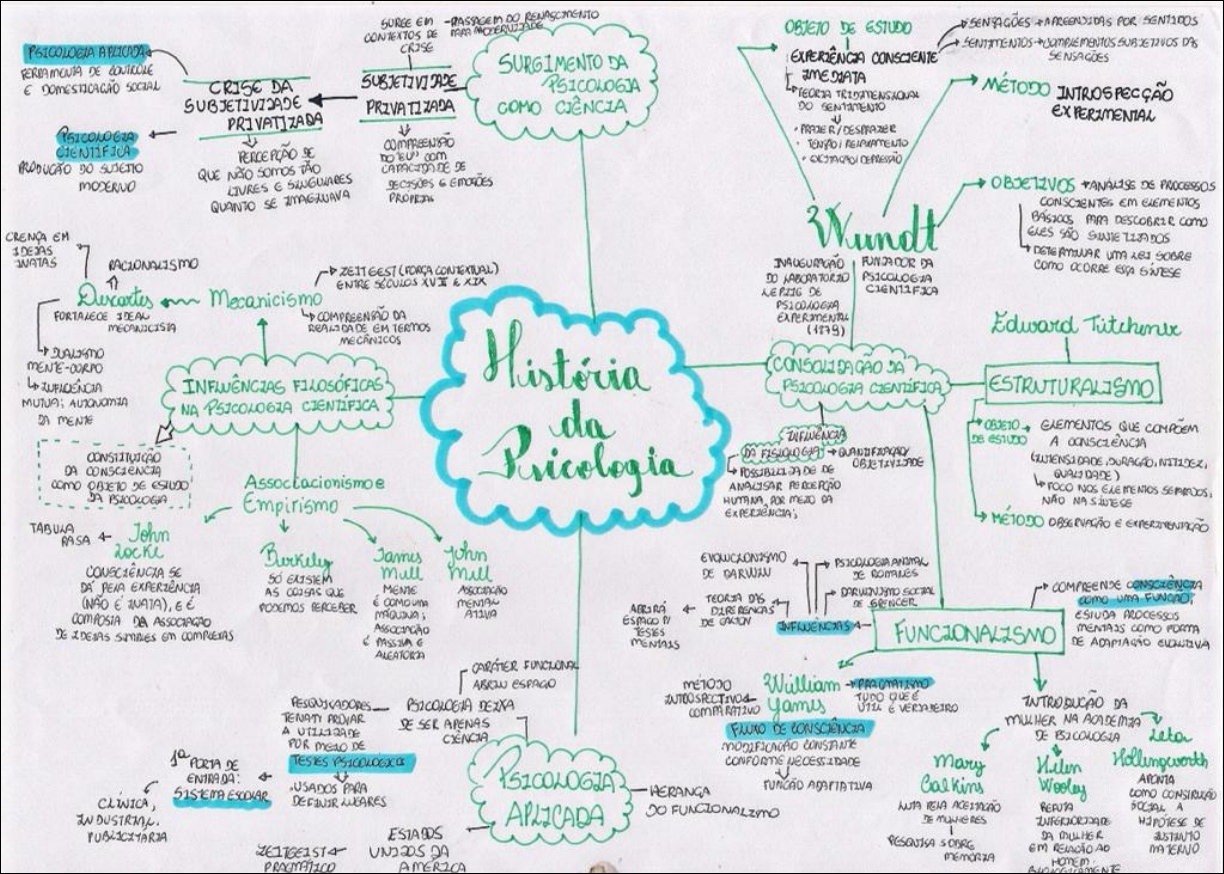 SURGIMENTO DA
PSICOLOGIA
COMO CIÊNCIA
SURGE EM
CONTEXTOS DE
CRISE
PASSAGEM DO RENASCIMENTO
PARA MODERNIDADE
SUBJETIVIDADE
PRIVATIZADA
COMPREENSÃO
DO "EU" COM
CAPACIDADE DE
DECISÕES E EMOÇÕES
PRÓPRIAS
CRISE DA
SUBJETIVIDADE
PRIVATIZADA
PERCEPÇÃO DE
QUE NÃO SOMOS TÃO
LIVRES E SINGULARES
QUANTO SE IMAGINAVA
PSICOLOGIA APLICADA
FERRAMENTA DE CONTROLE
E DOMESTICAÇÃO SOCIAL
PSICOLOGIA
CIENTÍFICA
PRODUÇÃO DO SUJEITO
MODERNO
OBJETO DE ESTUDO
EXPERIÊNCIA CONSCIENTE
IMEDIATA
SENSAÇÕES → APREENDIDAS POR SENTIDOS
SENTIMENTOS → COMPLEMENTOS SUBJETIVOS DAS
SENSAÇÕES
TEORIA TRIDIMENSIONAL
DO SENTIMENTO
• PRAZER/DESPRAZER
• TENSÃO/RELAXAMENTO
• EXCITAÇÃO/DEPRESSÃO
MÉTODO INTROSPECÇÃO
EXPERIMENTAL
OBJETIVOS → ANÁLISE DE PROCESSOS
CONSCIENTES EM ELEMENTOS
BÁSICOS PARA DESCOBRIR COMO
ELES SÃO SINTETIZADOS
DETERMINAR UMA LEI SOBRE
COMO OCORRE ESSA SÍNTESE
Wundt
INAUGURAÇÃO
DO LABORATÓRIO
LEIPZIG DE
PSICOLOGIA
EXPERIMENTAL
(1879)
FUNDADOR DA
PSICOLOGIA
CIENTÍFICA
CRENÇA EM
IDEIAS
INATAS
RACIONALISMO
Descartes
FORTALECE IDEAL
MECANICISTA
DUALISMO
MENTE-CORPO
INFLUÊNCIA
MÚTUA; AUTONOMIA
DA MENTE
Mecanicismo
ZEITGEIST (FORÇA CONTEXTUAL)
ENTRE SÉCULOS XVII E XIX
COMPREENSÃO DA
REALIDADE EM TERMOS
MECÂNICOS
INFLUÊNCIAS FILOSÓFICAS
NA PSICOLOGIA CIENTÍFICA
CONSTITUIÇÃO
DA CONSCIÊNCIA
COMO OBJETO DE ESTUDO
DA PSICOLOGIA
História
da
Psicologia
CONSOLIDAÇÃO DA
PSICOLOGIA CIENTÍFICA
INFLUÊNCIA
DA FISIOLOGIA
QUANTIFICAÇÃO/
OBJETIVIDADE
POSSIBILIDADE DE
ANALISAR PERCEPÇÃO
HUMANA, POR MEIO DA
EXPERIÊNCIA;
Edward Titchener
ESTRUTURALISMO
OBJETO
DE ESTUDO
ELEMENTOS QUE COMPÕEM
A CONSCIÊNCIA
(INTENSIDADE, DURAÇÃO, NITIDEZ,
QUALIDADE)
FOCO NOS ELEMENTOS SEPARADOS,
NÃO NA SÍNTESE
MÉTODO OBSERVAÇÃO E EXPERIMENTAÇÃO
Associacionismo e
Empirismo
TÁBULA
RASA
John
Locke
CONSCIÊNCIA SE
DÁ PELA EXPERIÊNCIA
(NÃO É INATA), E É
COMPOSTA DA ASSOCIAÇÃO
DE IDEIAS SIMPLES EM COMPLEXAS
Berkeley
SÓ EXISTEM
AS COISAS QUE
PODEMOS PERCEBER
James
Mill
MENTE
É COMO UMA
MÁQUINA;
ASSOCIAÇÃO
É PASSIVA E
ALEATÓRIA
John
Mill
ASSOCIAÇÃO
MENTAL
ATIVA
EVOLUCIONISMO
DE DARWIN
PSICOLOGIA ANIMAL
DE ROMANES
DARWINISMO SOCIAL
DE SPENCER
TEORIA DAS
DIFERENÇAS
DE GALTON
ABRIRÁ
ESPAÇO P/
TESTES
MENTAIS
INFLUÊNCIAS
FUNCIONALISMO
COMPREENDE CONSCIÊNCIA
COMO UMA FUNÇÃO;
ESTUDA PROCESSOS
MENTAIS COMO FORMA
DE ADAPTAÇÃO EVOLUTIVA
MÉTODO
INTROSPECTIVO
COMPARATIVO
William
James
PRAGMATISMO
TUDO QUE É
ÚTIL É VERDADEIRO
FLUXO DE CONSCIÊNCIA
MODIFICAÇÃO CONSTANTE
CONFORME NECESSIDADE
FUNÇÃO ADAPTATIVA
INTRODUÇÃO DA
MULHER NA ACADEMIA
DE PSICOLOGIA
Mary
Calkins
LUTA PELA ACEITAÇÃO
DE MULHERES
PESQUISA SOBRE
MEMÓRIA
Helen
Wooley
REFUTA
INFERIORIDADE
DA MULHER
EM RELAÇÃO AO
HOMEM
BIOLOGICAMENTE
Leta
Hollingworth
APONTA
COMO CONSTRUÇÃO
SOCIAL A
HIPÓTESE DE
INSTINTO
MATERNO
CARÁTER FUNCIONAL
ABRIU ESPAÇO
PSICOLOGIA DEIXA
DE SER APENAS
CIÊNCIA
PESQUISADORES
TENTAM PROVAR
A UTILIDADE
POR MEIO DE
TESTES PSICOLÓGICOS
• USADOS PARA
DEFINIR LUGARES
1ª PORTA DE
ENTRADA:
SISTEMA ESCOLAR
CLÍNICA,
INDUSTRIAL,
PUBLICITÁRIA
PSICOLOGIA
APLICADA
HERANÇA
DO FUNCIONALISMO
ESTADOS
UNIDOS DA
AMÉRICA
ZEITGEIST
PRAGMÁTICO